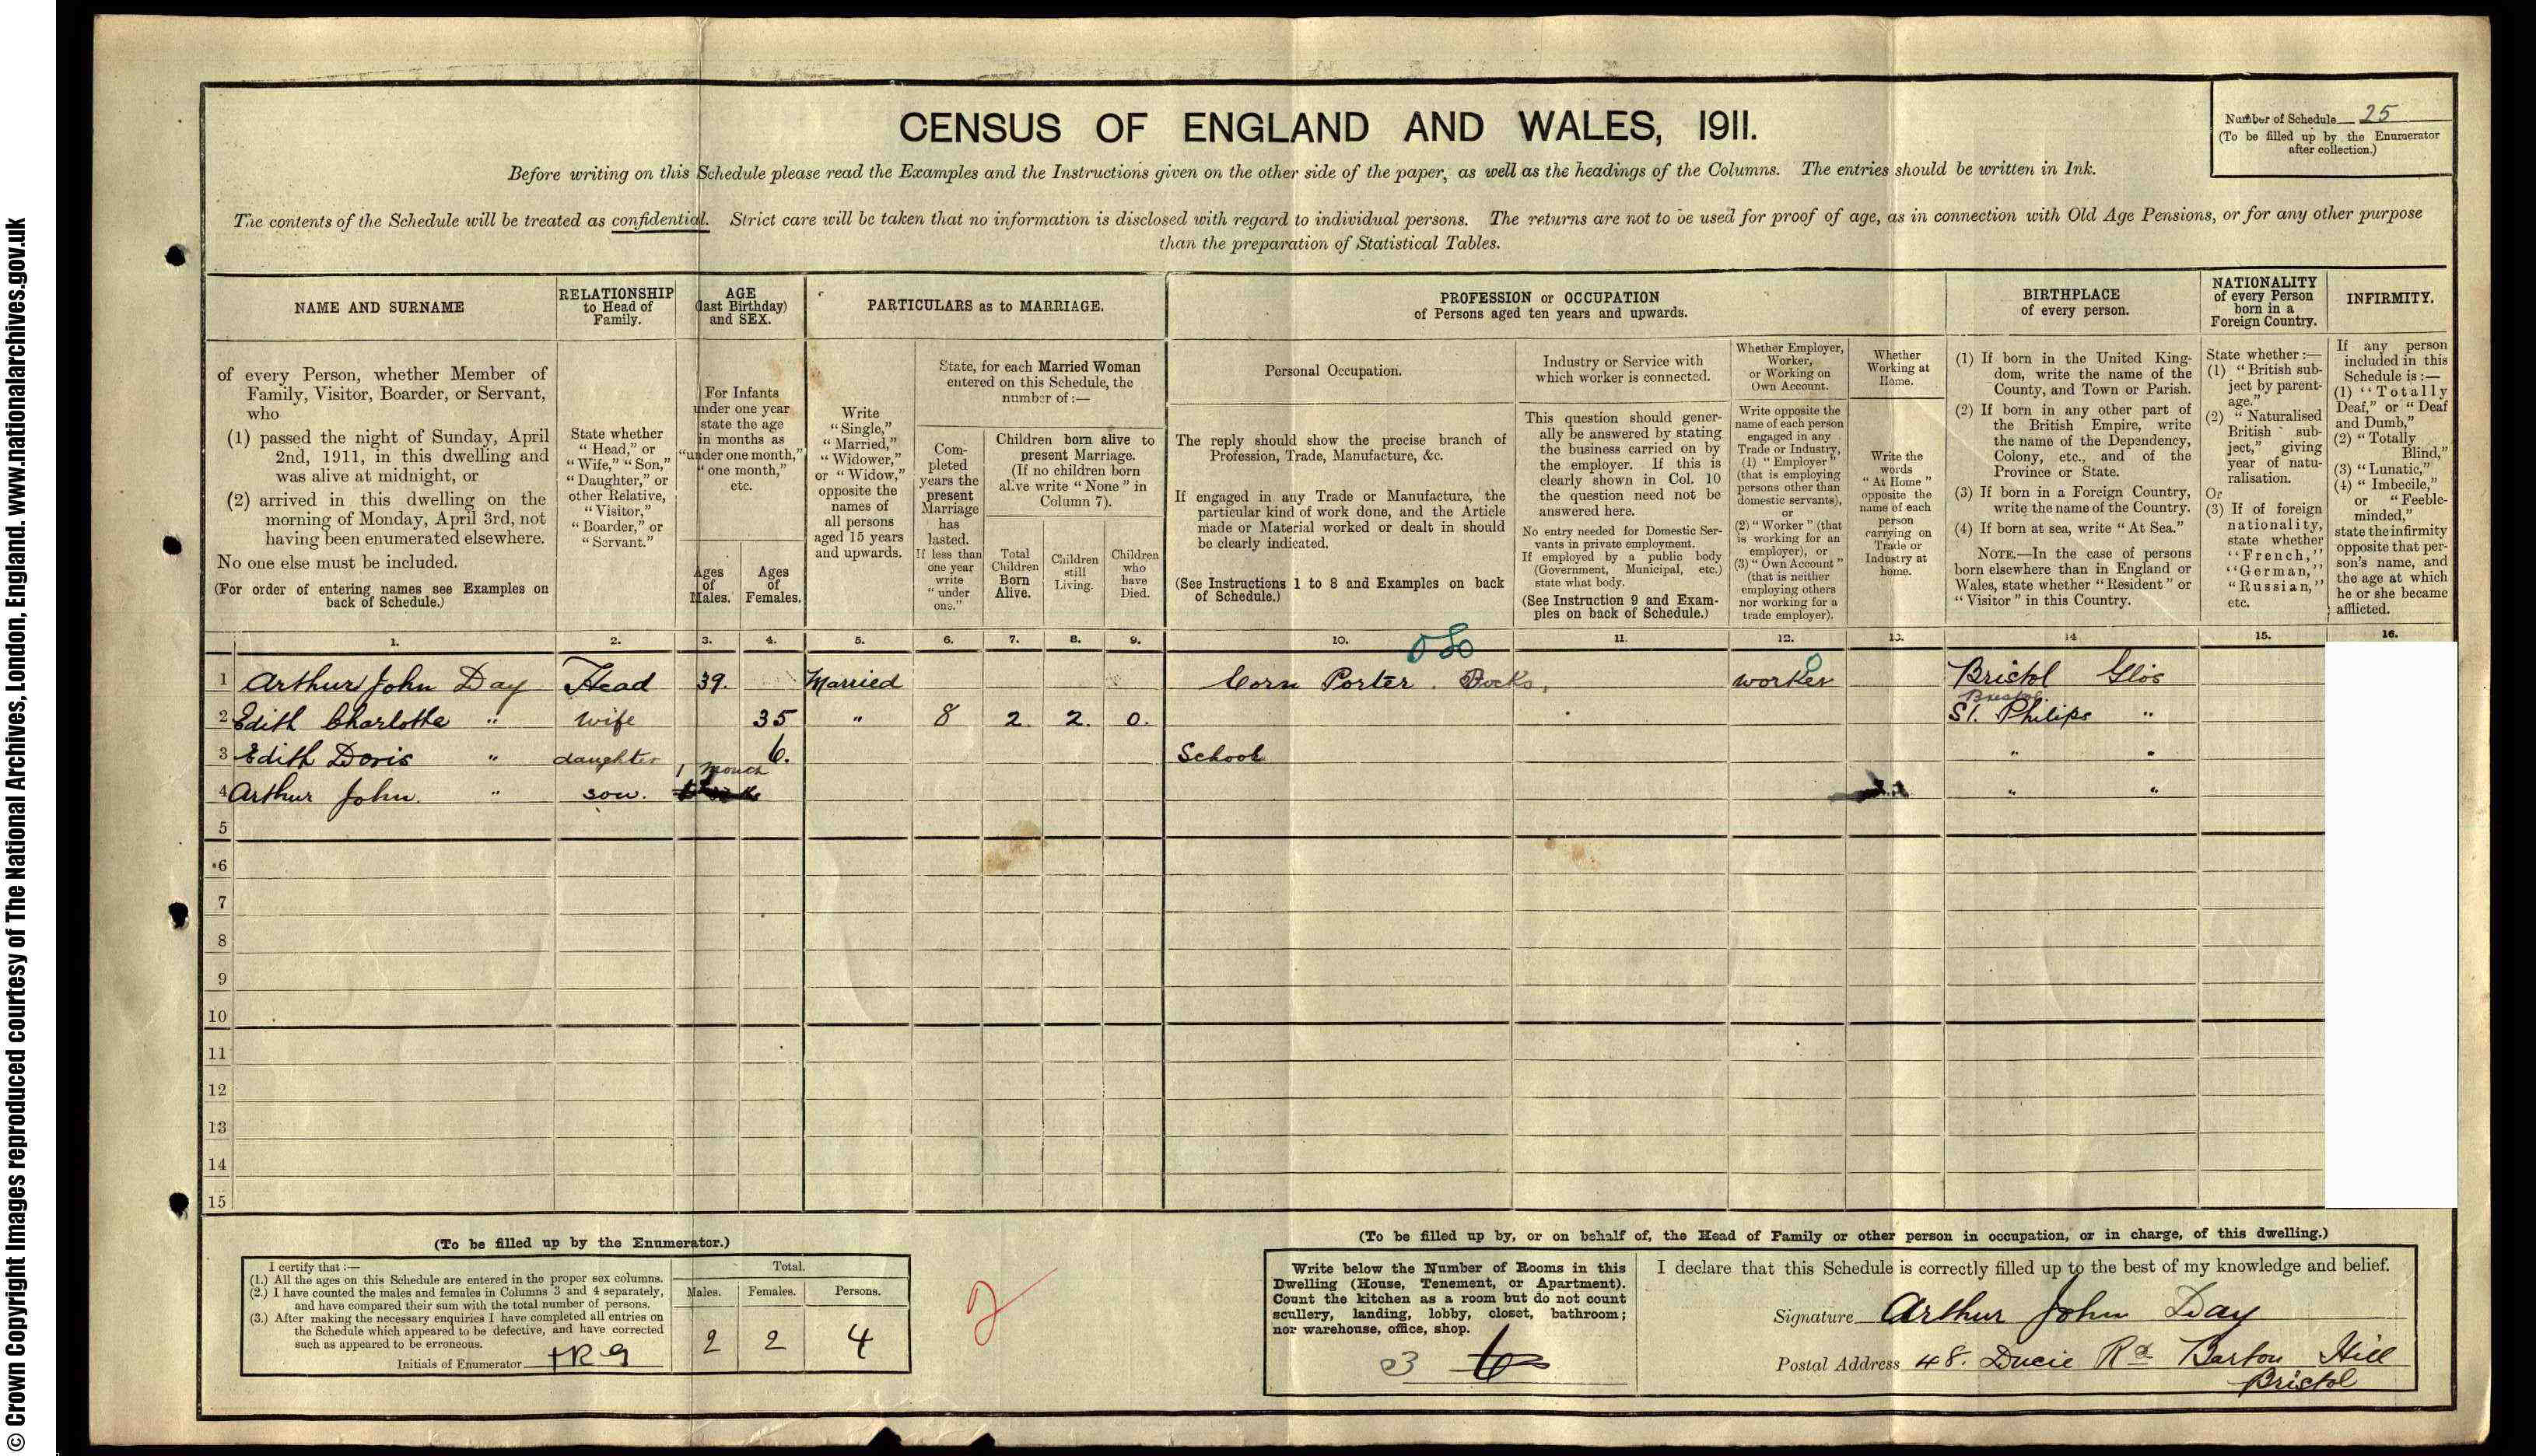 © Crown Copyright Images reproduced courtesy of The National Archives, London, England. www.nationalarchives.gov.uk
CENSUS OF ENGLAND AND WALES, 1911.
Number of Schedule 25
(To be filled up by the Enumerator
after collection.)
Before writing on this Schedule please read the Examples and the Instructions given on the other side of the paper, as well as the headings of the Columns. The entries should be written in Ink.
The contents of the Schedule will be treated as confidential. Strict care will be taken that no information is disclosed with regard to individual persons. The returns are not to be used for proof of age, as in connection with Old Age Pensions, or for any other purpose
than the preparation of Statistical Tables.
NAME AND SURNAME
of every Person, whether Member of
Family, Visitor, Boarder, or Servant,
who
(1) passed the night of Sunday, April
2nd, 1911, in this dwelling and
was alive at midnight, or
(2) arrived in this dwelling on the
morning of Monday, April 3rd, not
having been enumerated elsewhere.
No one else must be included.
(For order of entering names see Examples on
back of Schedule.)
RELATIONSHIP
to Head of
Family.
State whether
"Head," or
"Wife," "Son,"
"Daughter," or
other Relative,
"Visitor,"
"Boarder," or
"Servant."
AGE
(last Birthday)
and SEX.
For Infants
under one year
state the age
in months as
"under one month,"
"one month,"
etc.
Ages
of
Males.
Ages
of
Females.
PARTICULARS as to MARRIAGE.
Write
"Single,"
"Married,"
"Widower,"
or "Widow,"
opposite the
names of
all persons
aged 15 years
and upwards.
State, for each Married Woman
entered on this Schedule, the
number of:—
Com-
pleted
years the
present
Marriage
has
lasted.
If less than
one year
write
"under
one."
Children born alive to
present Marriage.
(If no children born
alive write "None" in
Column 7).
Total
Children
Born
Alive.
Children
still
Living.
Children
who
have
Died.
PROFESSION or OCCUPATION
of Persons aged ten years and upwards.
Personal Occupation.
The reply should show the precise branch of
Profession, Trade, Manufacture, &c.
If engaged in any Trade or Manufacture, the
particular kind of work done, and the Article
made or Material worked or dealt in should
be clearly indicated.
(See Instructions 1 to 8 and Examples on back
of Schedule.)
Industry or Service with
which worker is connected.
This question should gener-
ally be answered by stating
the business carried on by
the employer. If this is
clearly shown in Col. 10
the question need not be
answered here.
No entry needed for Domestic Ser-
vants in private employment.
If employed by a public body
(Government, Municipal, etc.)
state what body.
(See Instruction 9 and Exam-
ples on back of Schedule.)
Whether Employer,
Worker,
or Working on
Own Account.
Write opposite the
name of each person
engaged in any
Trade or Industry,
(1) "Employer"
(that is employing
persons other than
domestic servants),
or
(2) "Worker" (that
is working for an
employer), or
(3) "Own Account"
(that is neither
employing others
nor working for a
trade employer).
Whether
Working at
Home.
Write the
words
"At Home"
opposite the
name of each
person
carrying on
Trade or
Industry at
home.
BIRTHPLACE
of every person.
(1) If born in the United King-
dom, write the name of the
County, and Town or Parish.
(2) If born in any other part of
the British Empire, write
the name of the Dependency,
Colony, etc., and of the
Province or State.
(3) If born in a Foreign Country,
write the name of the Country.
(4) If born at sea, write "At Sea."
NOTE.—In the case of persons
born elsewhere than in England or
Wales, state whether "Resident" or
"Visitor" in this Country.
NATIONALITY
of every Person
born in a
Foreign Country.
State whether:—
(1) "British sub-
ject by parent-
age."
(2) "Naturalised
British sub-
ject," giving
year of natu-
ralisation.
Or
(3) If of foreign
nationality,
state whether
"French,"
"German,"
"Russian,"
etc.
INFIRMITY.
If any person
included in this
Schedule is:—
(1) "Totally
Deaf," or "Deaf
and Dumb,"
(2) "Totally
Blind,"
(3) "Lunatic,"
(4) "Imbecile,"
or "Feeble-
minded,"
state the infirmity
opposite that per-
son's name, and
the age at which
he or she became
afflicted.
1. 2. 3. 4. 5. 6. 7. 8. 9. 10. 11. 12. 13. 14 15. 16.
050
1 Arthur John Day Head 39. Married Corn Porter. Docks, worker 0 Bristol Glos
Bristol
2 Edith Charlotte " wife 35 " 8 2. 2. 0. St. Philips "
3 Edith Doris " daughter 6. School " "
1 month
4 Arthur John. " son. " "
5
6
7
8
9
10
11
12
13
14
15
(To be filled up by the Enumerator.)
I certify that:—
(1.) All the ages on this Schedule are entered in the proper sex columns.
(2.) I have counted the males and females in Columns 3 and 4 separately,
and have compared their sum with the total number of persons.
(3.) After making the necessary enquiries I have completed all entries on
the Schedule which appeared to be defective, and have corrected
such as appeared to be erroneous.
Initials of Enumerator
Total.
Males. Females. Persons.
2 2 4
(To be filled up by, or on behalf of, the Head of Family or other person in occupation, or in charge, of this dwelling.)
Write below the Number of Rooms in this
Dwelling (House, Tenement, or Apartment).
Count the kitchen as a room but do not count
scullery, landing, lobby, closet, bathroom;
nor warehouse, office, shop.
3
I declare that this Schedule is correctly filled up to the best of my knowledge and belief.
Signature Arthur John Day
Postal Address 48. Ducie Rd Barton Hill
Bristol